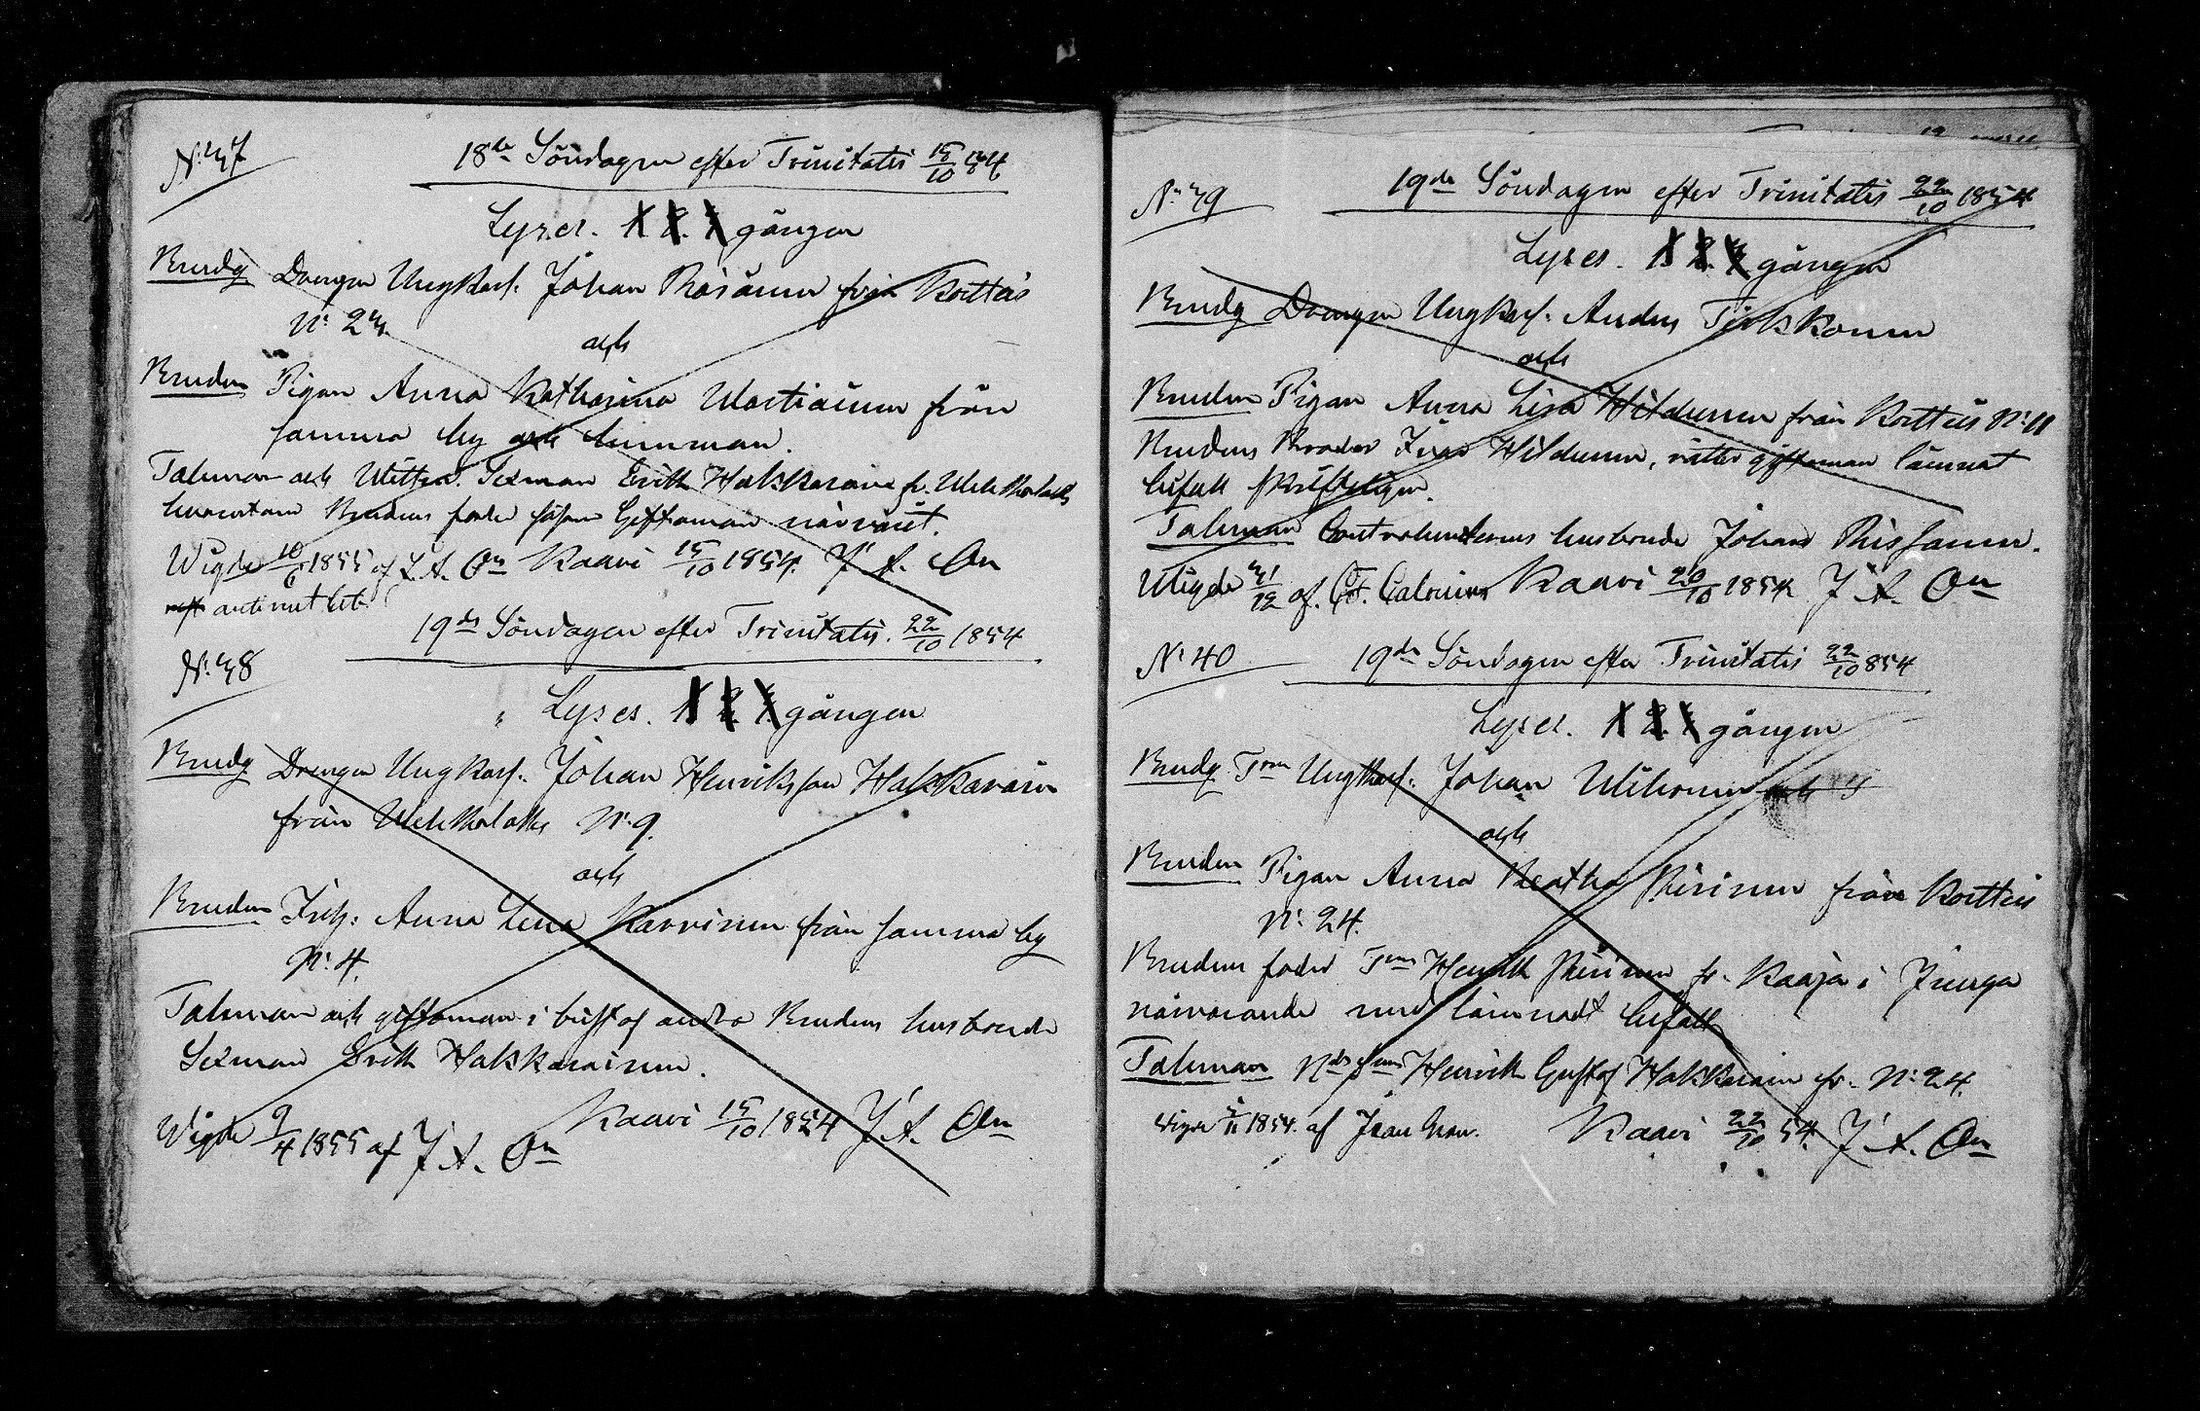 N:37
18de Söndagen efter Trinitatis 15/10 54
Lyses. 1. 2. 3 gången
Brudg Drengen Ungkarl. Johan Räsänen från Kortteis
N: 23.
och
Bruden Pigan Anna Katharina Martiainen från
samma by och hemman.
Talman och Vittne. Sexman Erik Hakkarainen fr.
Brudens fader såsom Giftoman närvait.
Wigde 10/6 1855 af J. A. On Kaavi 15/10 1854. J. A. On
19de Söndagen efter Trinitatis. 22/10 1854
N:38
Lyses. 1. 2. 3. gången
Brudg Drengen Ungkarl. Johan Henriksson Hakkarainen
från N:9.
och
Bruden Inh: Anna Lena Karvinen från samma by
N:4.
Talman och giftoman i brist af andra Brudens husbonde
Sexman Erik Hakkarainen.
Kaavi 15/10 1854 J. A. On
Wigde 9/4 1855 af J. A. On
N:39
19de Söndagen efter Trinitatis 22/10 1854
Lyses. 1. 2. 3 gången
Brudg Drengen Ungkarl. Anders Tirkkonen
och
Bruden Pigan Anna Lisa Hildunen från Kortteis N:11
Brudens Broder Hildunen, rätter giftoman lämnat
bifall skrifteligen.
Talman Contrahenternes husbonde Johan Rissanen.
Wigde 31/12 af Kaavi 20/10 1854 J. A. On
N:40
19de Söndagen efter Trinitatis 22/10 854
Lyses. 1. 2. 3 gången
Brudg. Tson Ungkarl. Johan
och
Bruden Pigan Anna Beatha Piirinen från Kortteis
N:24.
Brudens fader Henrik Piirinen fr. Kaaja i Juuga
närvarande med lämnadt bifall
Talman Henrik Gustaf Hakkarainen fr. N:24.
Vigde 1854. af Kaavi 22/10 54. J. A. On